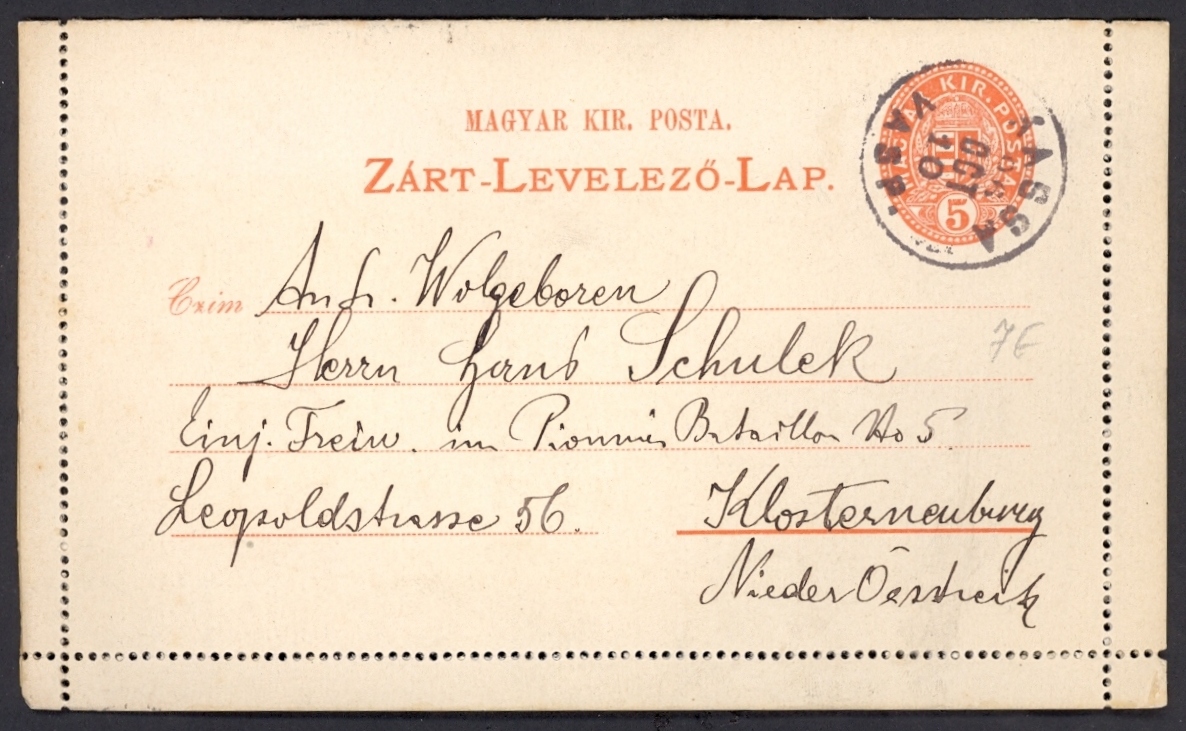 MAGYAR KIR. POSTA.
ZÁRT-LEVELEZŐ-LAP.
MAGYAR KIR. POSTA
5
VASP.
OCT
10
Czim
Wolgeboren
Herrn Hans Schulek
Einj. Freiw. im Pionnier Bataillon No 5
Leopoldstrasse 56.
Klosterneuburg
Nieder Oestreich
7E